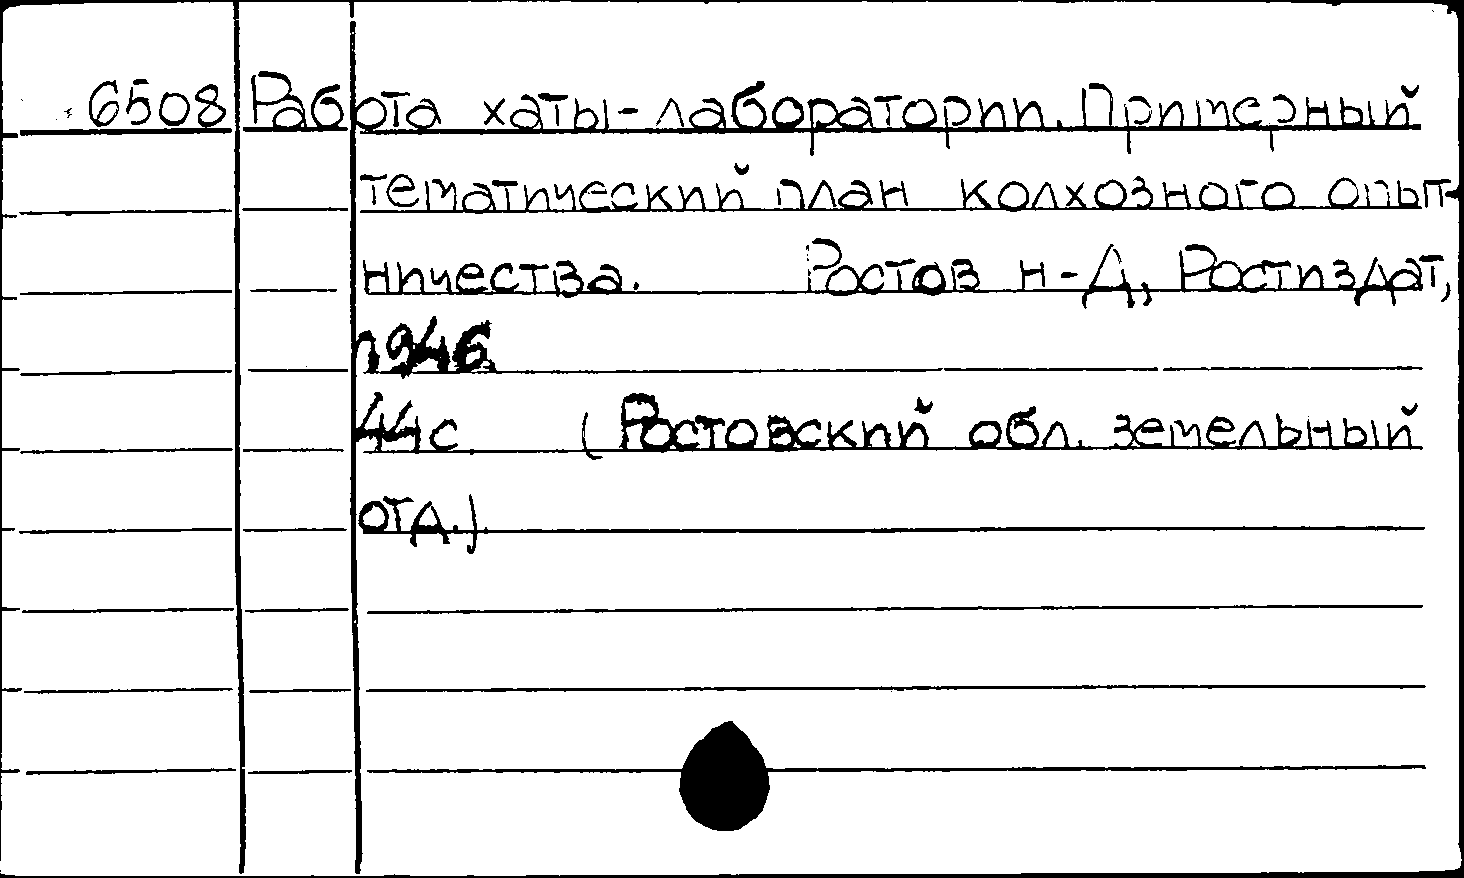 6508 Работа хаты-лаборатории. Примерный
тематический план колхозного опыт-
ничества. Ростов н-Д, Ростиздат,
1946.
44с. (Ростовский обл. земельный
отд.).